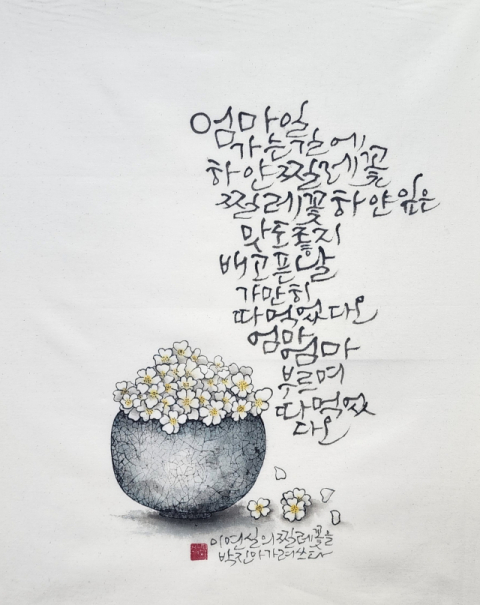 엄마 일
가는 길에
하얀 찔레꽃
찔레꽃 하얀 잎은
맛도 좋지
배고픈 날
가만히
따 먹었다오
엄마
엄마
부르며
따 먹었
다오
이연실의 찔레꽃을
박진아가 려 쓰다